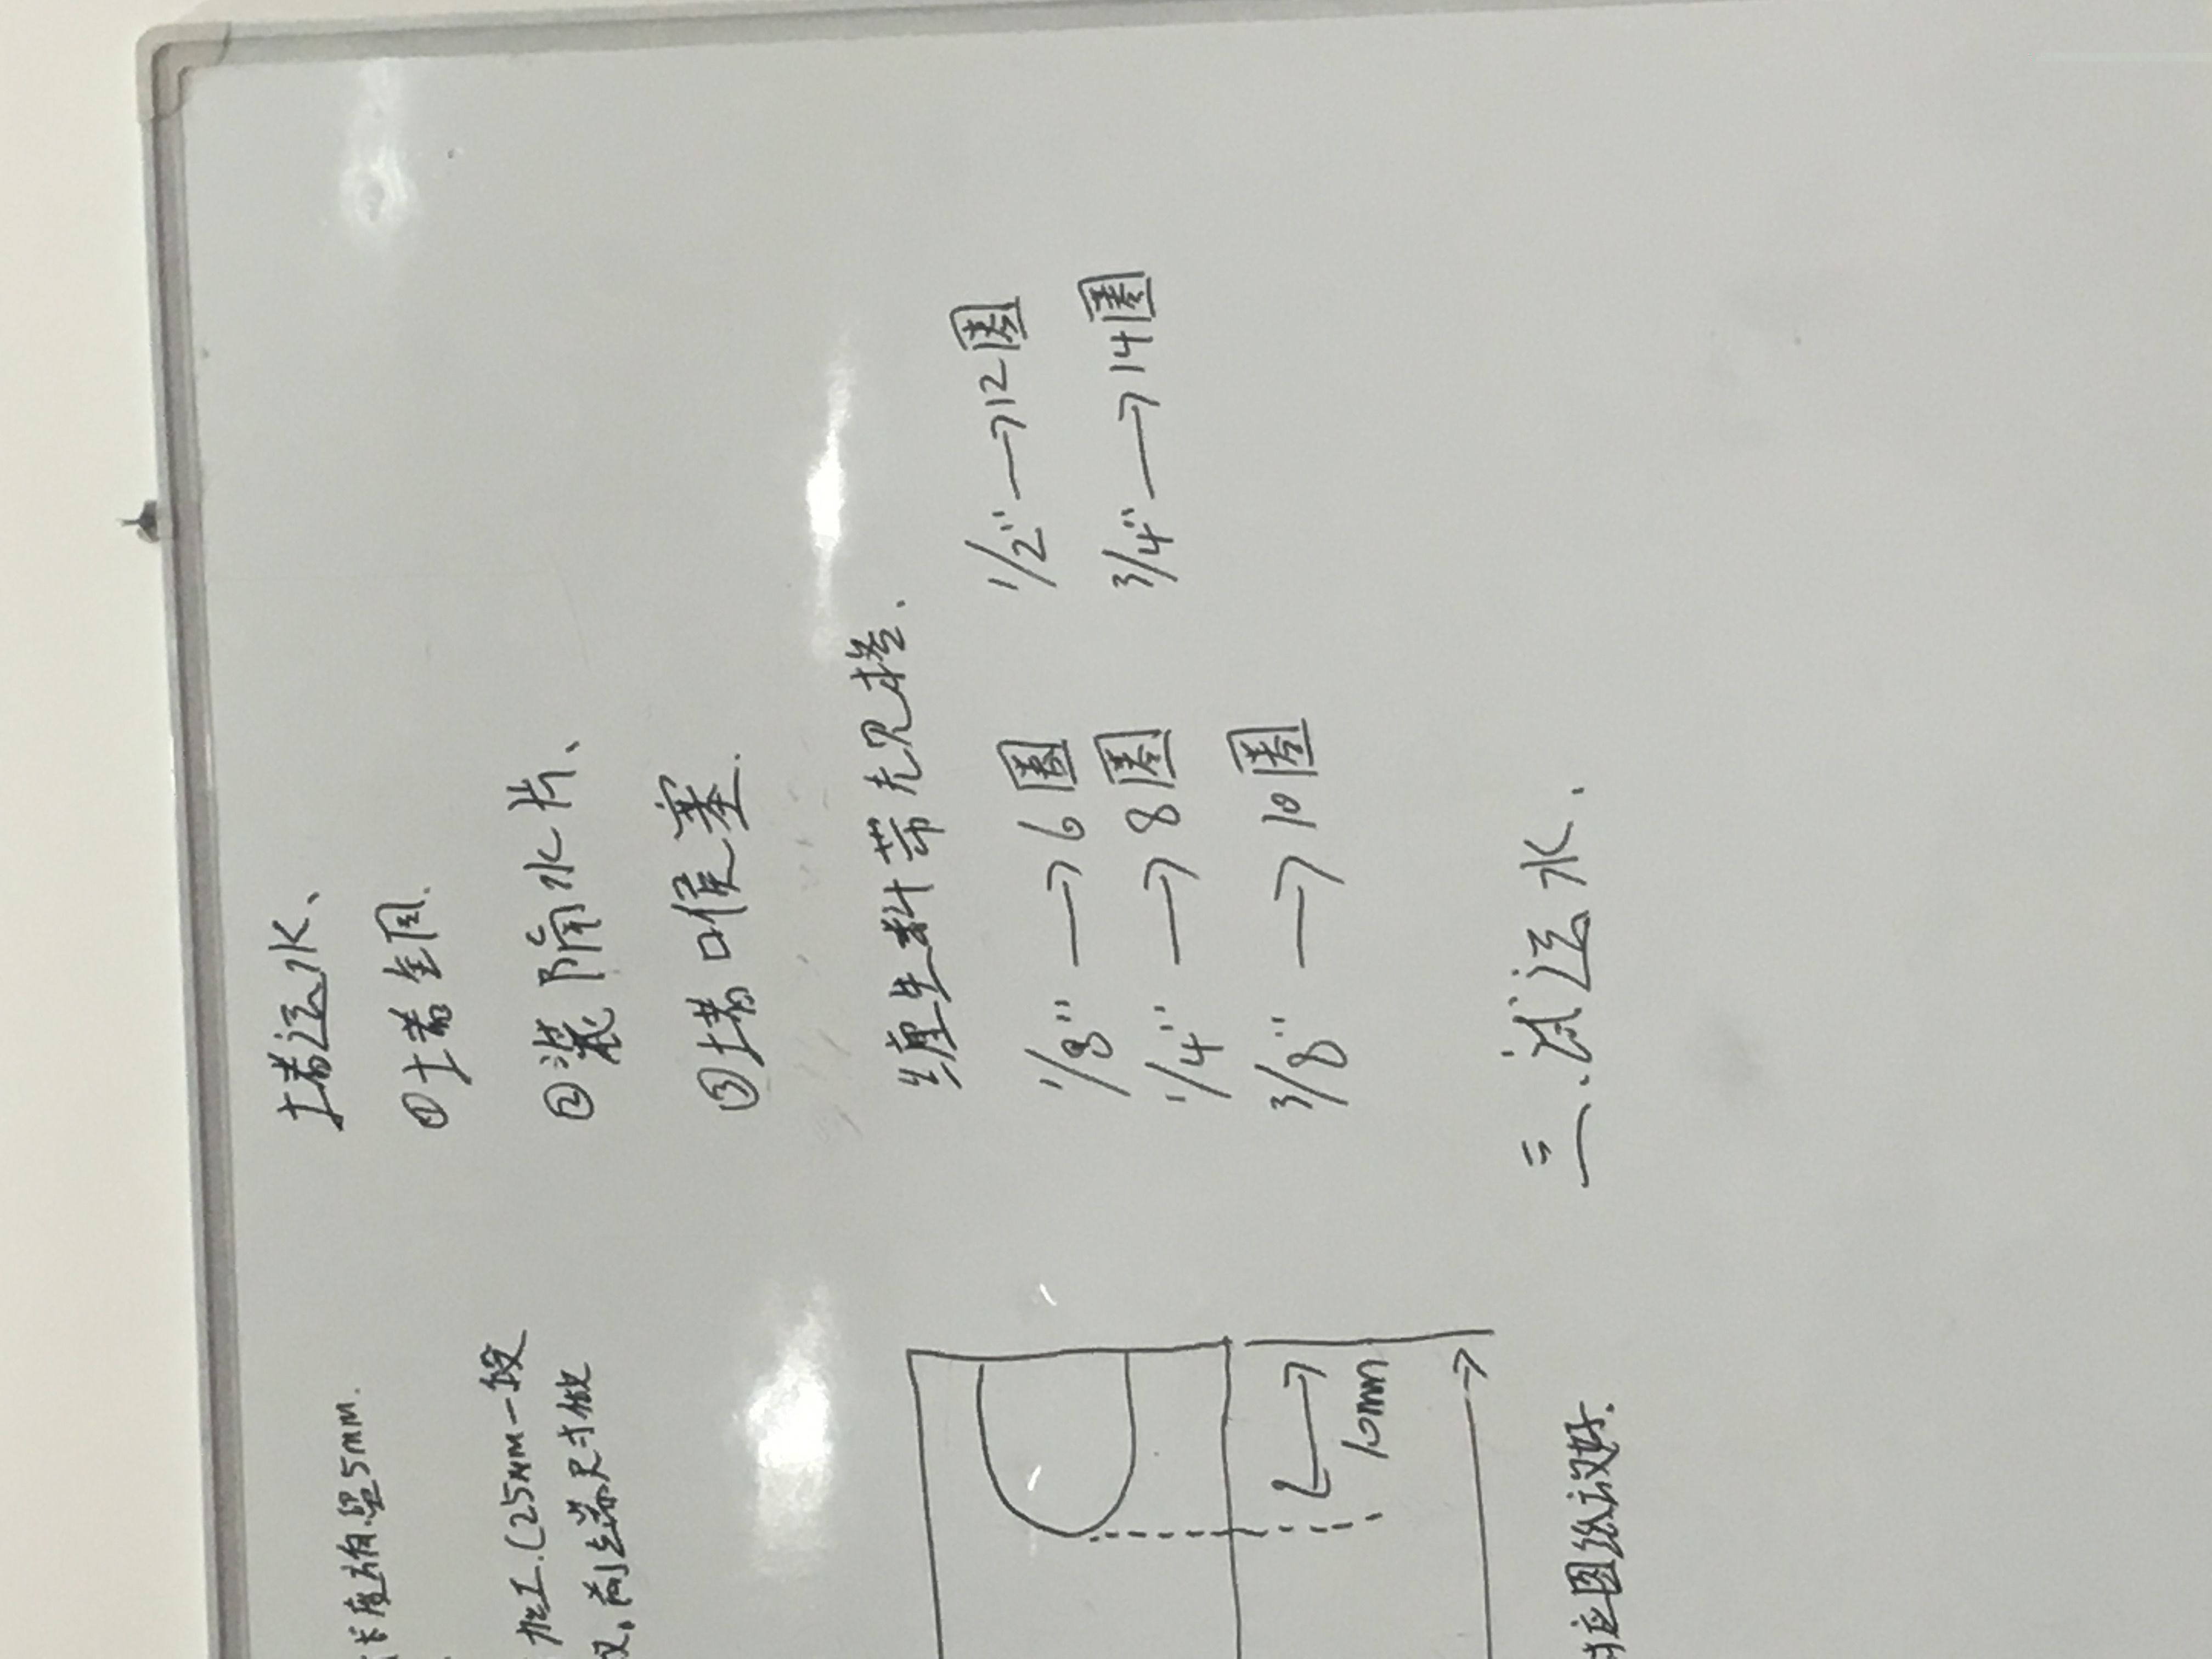 长度方向.留5mm.
加工.(25mm一段
前后端尺寸做
10mm
对应图纸放好.
堵运水、
①堵铜.
②装隔水片、
③堵喉塞.
缠生料带规格.
1/8" →6圈
1/4" →8圈
3/8" →10圈
1/2" →12圈
3/4" →14圈
三.试运水.